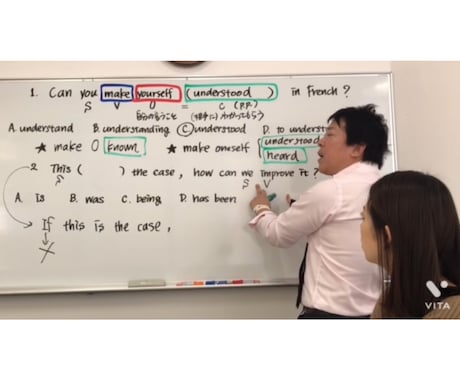 1. Can you make yourself (understood) in French?
S V O = C (P.P.)
自分の言うこと (相手に)
A. understand B. understanding C. understood D. to underst
★ make O known ★ make oneself understood
heard
2. This ( ) the case, how can we improve it?
S S V
A. Is B. was C. being D. has been
If this is the case,
X
VITA